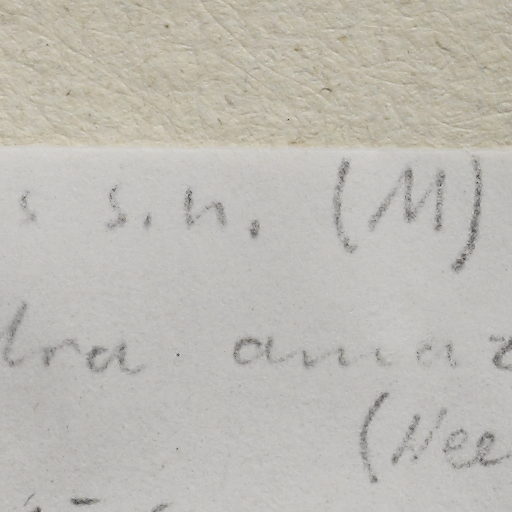 s s.n. (M)
dra amaz
(Nee